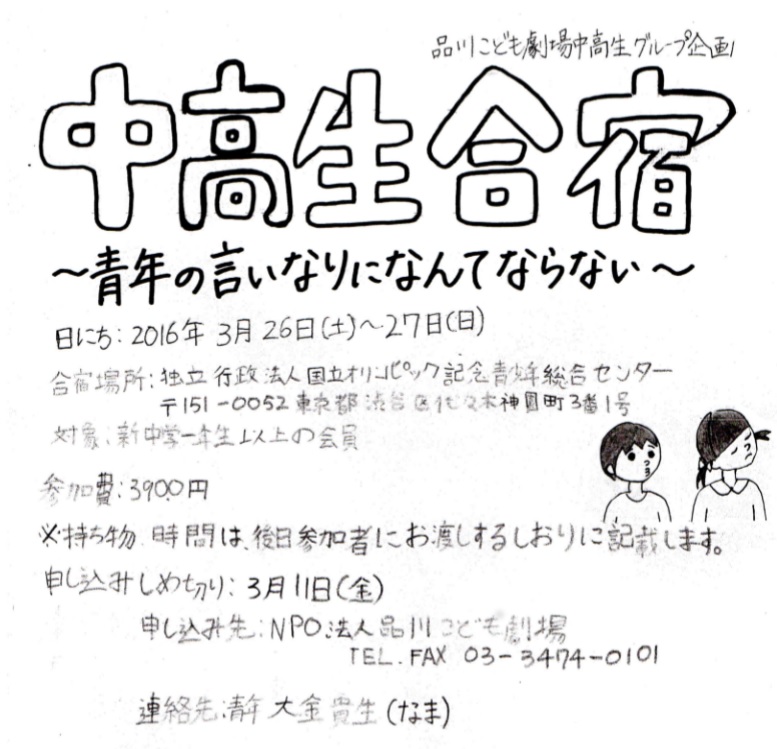 品川こども劇場中高生グループ企画
中高生合宿
～青年の言いなりになんてならない～
日にち:2016年 3月26日(土)～27日(日)
合宿場所:独立行政法人国立オリンピック記念青少年総合センター
〒151-0052 東京都渋谷区代々木神園町3番1号
対象:新中学一年生以上の会員
参加費:3900円
※持ち物、時間は、後日参加者にお渡しするしおりに記載します。
申し込みしめ切り:3月11日(金)
申し込み先:NPO法人品川こども劇場
TEL.FAX 03-3474-0101
連絡先:青年 大金貴生(なま)